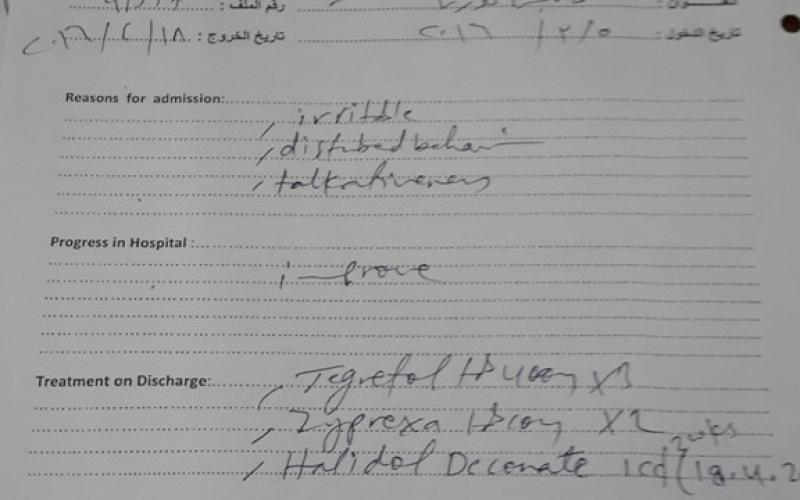 رقم الملف :
تاريخ الدخول : ٢٠١٦ / ٢ / ٥ تاريخ الخروج : ١٨ / ٤ / ٢٠١٦
Reasons for admission:
, irritable
, distubed behavi
, talkativeness
Progress in Hospital :
improve
Treatment on Discharge:
, Tegretol 400mg X3
, Zyprexa X2
, Halidol Deconate